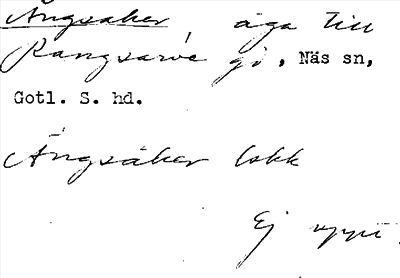 Ängsåker, äga till
Rangsarve gd, Näs sn,
Gotl. S. hd.
Ängsåker lokk
Ej uppt.